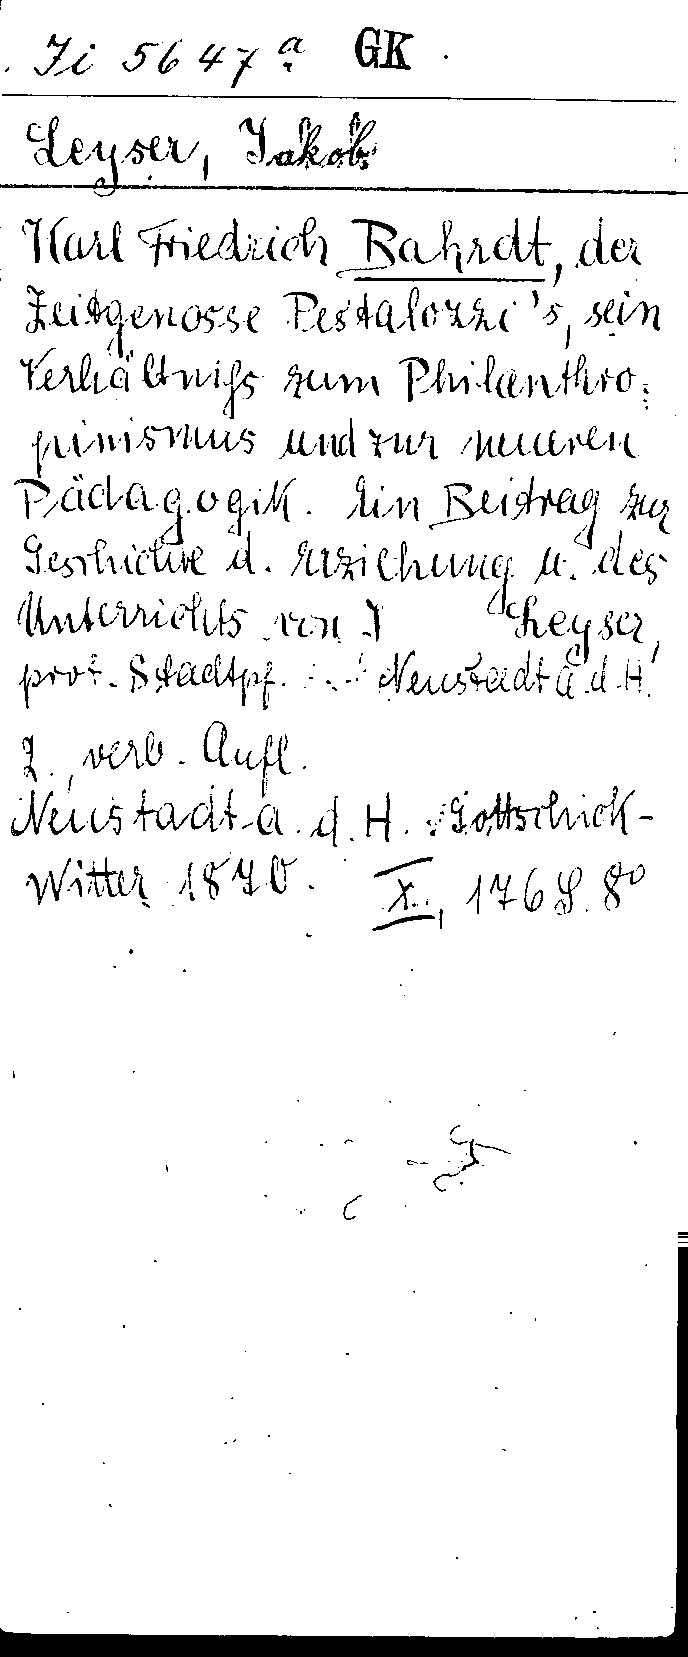 Ji 5647 a GK
Leyser, Jakob
Karl Friedrich Bahrdt, der
Zeitgenosse Pestalozzi's, sein
Verhältniß zum Philanthro-
pinismus und zur neueren
Pädagogik. Ein Beitrag zur
Geschichte d. Erziehung u. des
Unterrichts von J Leyser,
prot. Stadtpf. Neustadt a. d. H.
2., verb. Aufl.
Neustadt a. d. H. Gottschick-
Witter 1870. X, 176 S. 8°